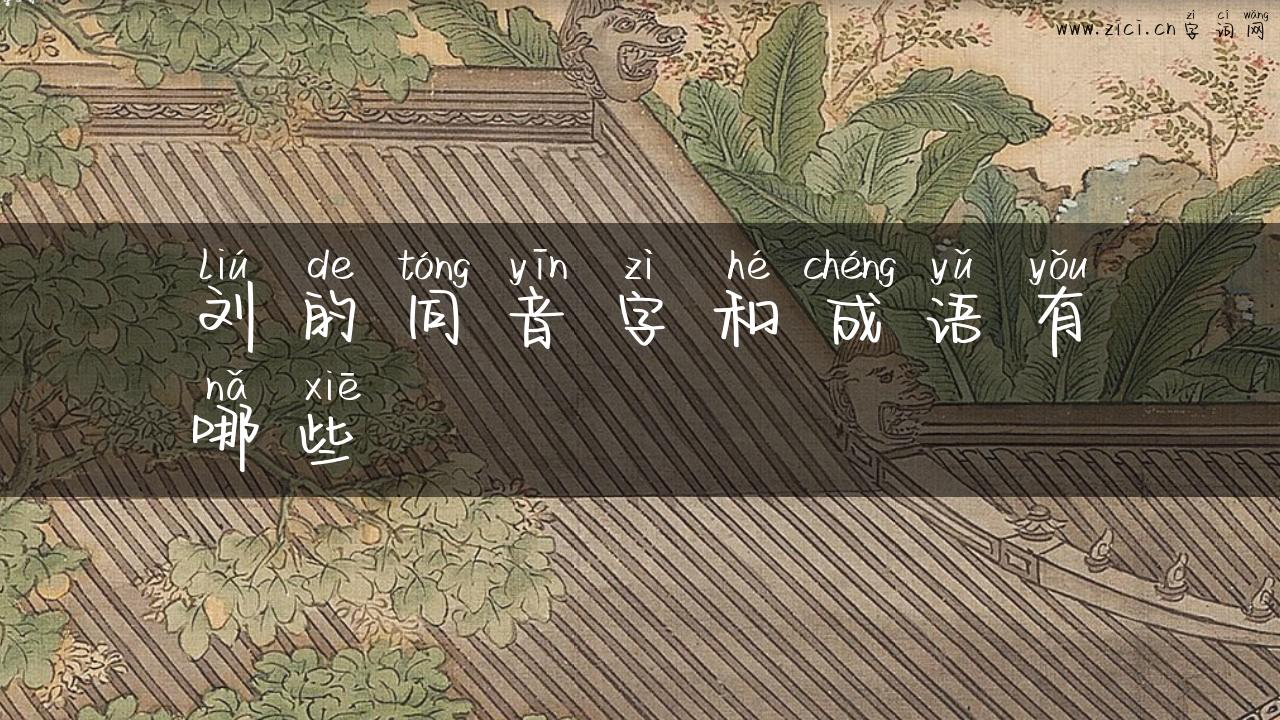 zì cí wǎng
www.zici.cn 字词网
liú de tóng yīn zì hé chéng yǔ yǒu
刘的同音字和成语有
nǎ xiē
哪些